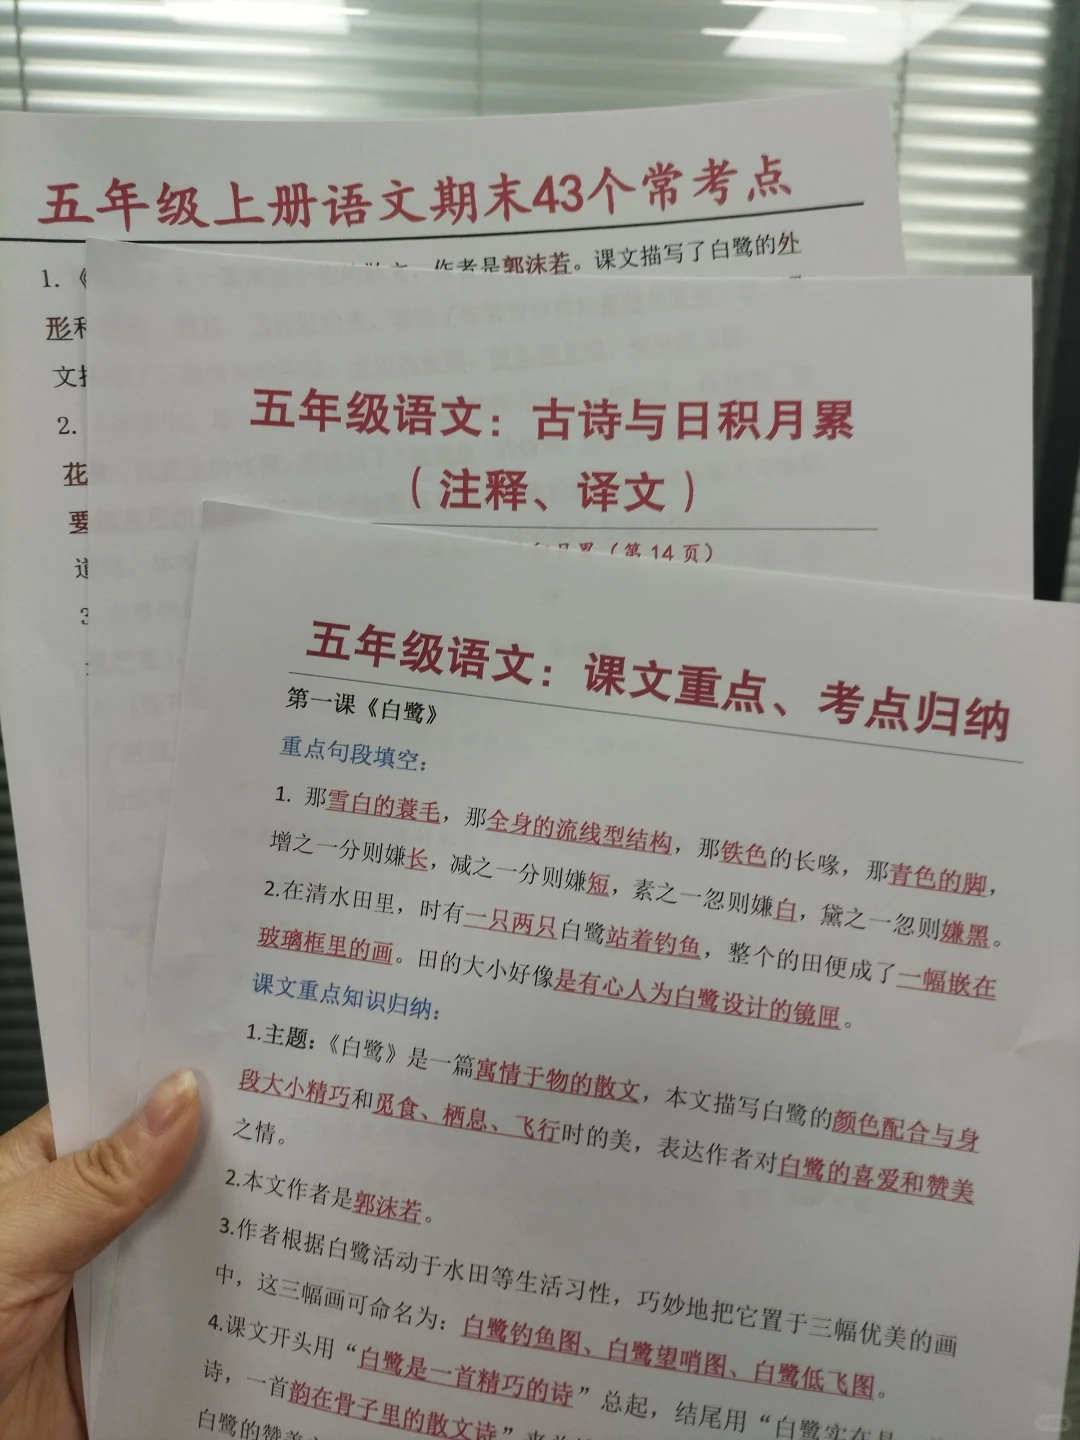 五年级上册语文期末43个常考点
1.《
作者是郭沫若。课文描写了白鹭的外
形和
文描
2.
花
要
道
3
五年级语文：古诗与日积月累
（注释、译文）
（第14页）
五年级语文：课文重点、考点归纳
第一课《白鹭》
重点句段填空：
1. 那雪白的蓑毛，那全身的流线型结构，那铁色的长喙，那青色的脚，
增之一分则嫌长，减之一分则嫌短，素之一忽则嫌白，黛之一忽则嫌黑。
2.在清水田里，时有一只两只白鹭站着钓鱼，整个的田便成了一幅嵌在
玻璃框里的画。田的大小好像是有心人为白鹭设计的镜匣。
课文重点知识归纳：
1.主题：《白鹭》是一篇寓情于物的散文，本文描写白鹭的颜色配合与身
段大小精巧和觅食、栖息、飞行时的美，表达作者对白鹭的喜爱和赞美
之情。
2.本文作者是郭沫若。
3.作者根据白鹭活动于水田等生活习性，巧妙地把它置于三幅优美的画
中，这三幅画可命名为：白鹭钓鱼图、白鹭望哨图、白鹭低飞图。
4.课文开头用“白鹭是一首精巧的诗”总起，结尾用“白鹭实在是
诗，一首韵在骨子里的散文诗”
白鹭的赞美